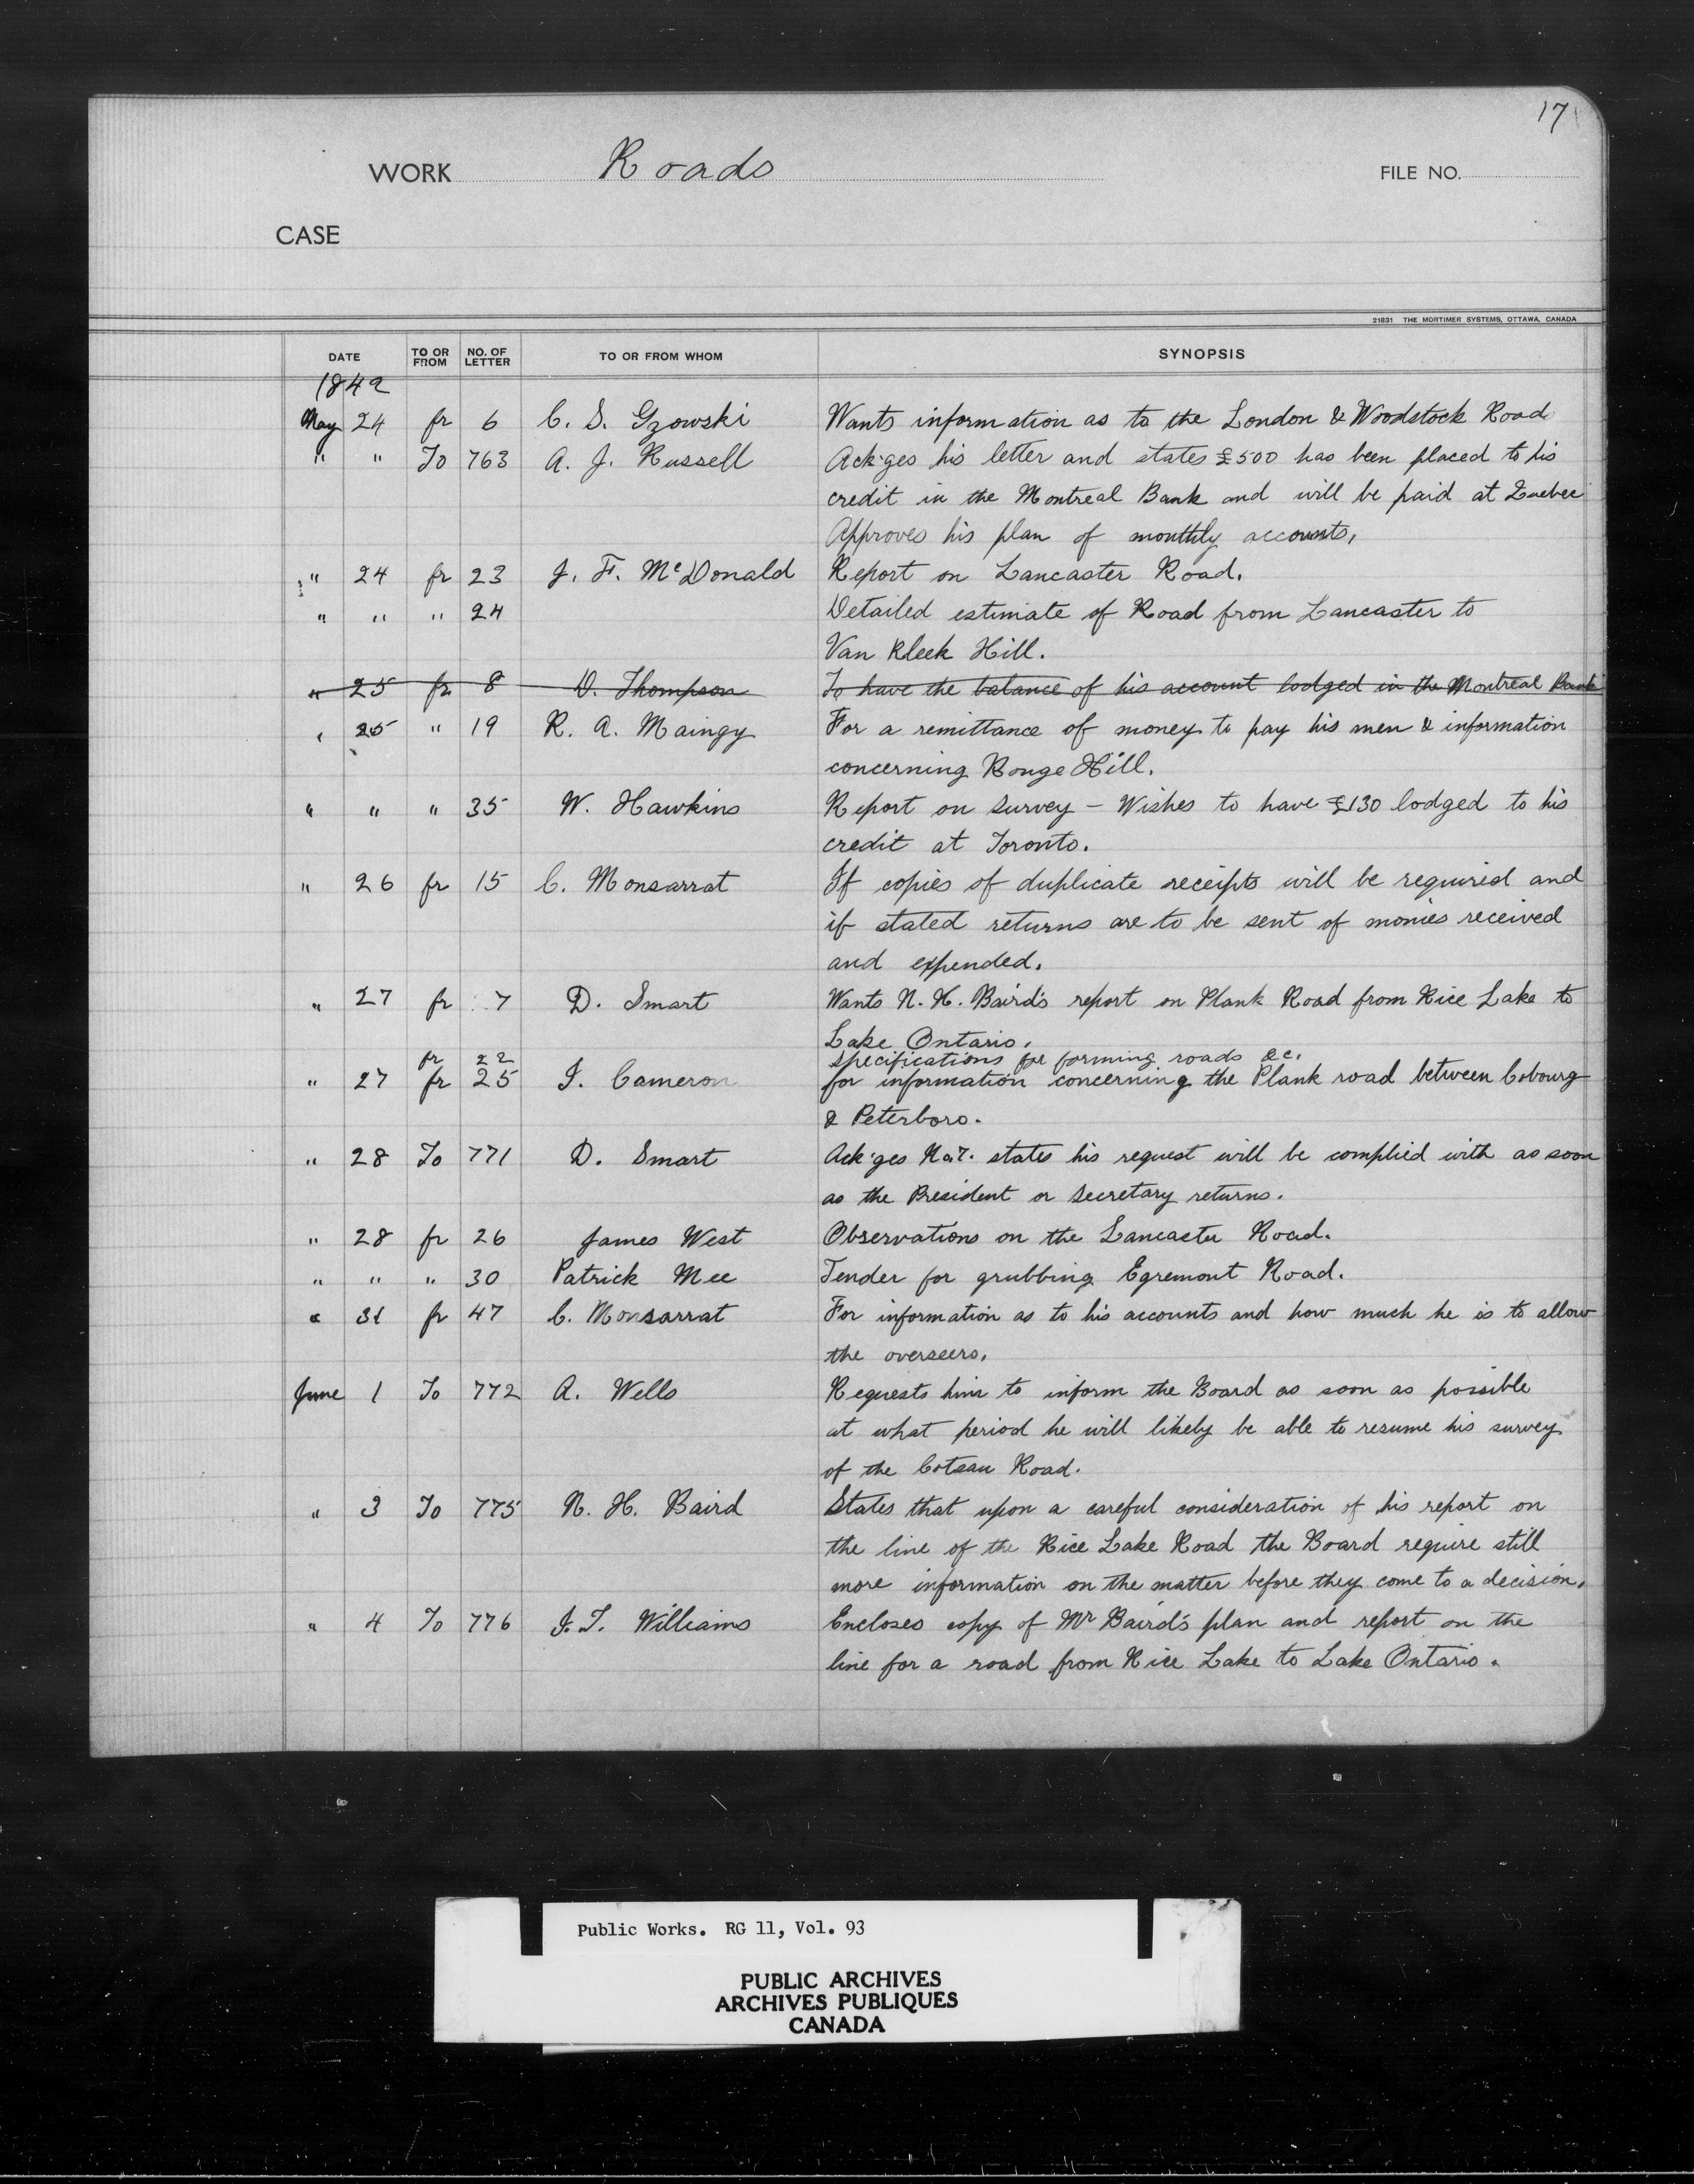 17
WORK Roads FILE NO.
CASE
21831 THE MORTIMER SYSTEMS, OTTAWA, CANADA
DATE TO OR FROM NO. OF LETTER TO OR FROM WHOM SYNOPSIS
1842
May 24 fr 6 C. S. Gzowski Wants information as to the London & Woodstock Road
" " To 763 A. J. Russell Ack'ges his letter and states £500 has been placed to his
credit in the Montreal Bank and will be paid at Quebec
Approves his plan of monthly accounts,
" 24 fr 23 J. F. McDonald Report on Lancaster Road.
" " " 24 Detailed estimate of Road from Lancaster to
Van Kleek Hill.
" 25 fr 8 D. Thompson To have the balance of his account lodged in the Montreal Bank
" 25 " 19 R. A. Maingy For a remittance of money to pay his men & information
concerning Rouge Hill.
" " " 35 W. Hawkins Report on survey - Wishes to have £130 lodged to his
credit at Toronto.
" 26 fr 15 C. Monsarrat If copies of duplicate receipts will be required and
if stated returns are to be sent of monies received
and expended.
" 27 fr 7 D. Smart Wants N. H. Baird's report on Plank Road from Rice Lake to
Lake Ontario.
fr 22 specifications for forming roads &c.
" 27 fr 25 J. Cameron for information concerning the Plank road between Cobourg
& Peterboro.
" 28 To 771 D. Smart Ack'ges No 7. states his request will be complied with as soon
as the President or Secretary returns.
" 28 fr 26 James West Observations on the Lancaster Road.
" " " 30 Patrick Mee Tender for grubbing Egremont Road.
" 31 fr 47 C. Monsarrat For information as to his accounts and how much he is to allow
the overseers.
June 1 To 772 A. Wells Requests him to inform the Board as soon as possible
at what period he will likely be able to resume his survey
of the Coteau Road.
" 3 To 775 N. H. Baird States that upon a careful consideration of his report on
the line of the Rice Lake Road the Board require still
more information on the matter before they come to a decision.
" 4 To 776 J. T. Williams Encloses copy of Mr Baird's plan and report on the
line for a road from Rice Lake to Lake Ontario.
Public Works. RG 11, Vol. 93
PUBLIC ARCHIVES
ARCHIVES PUBLIQUES
CANADA